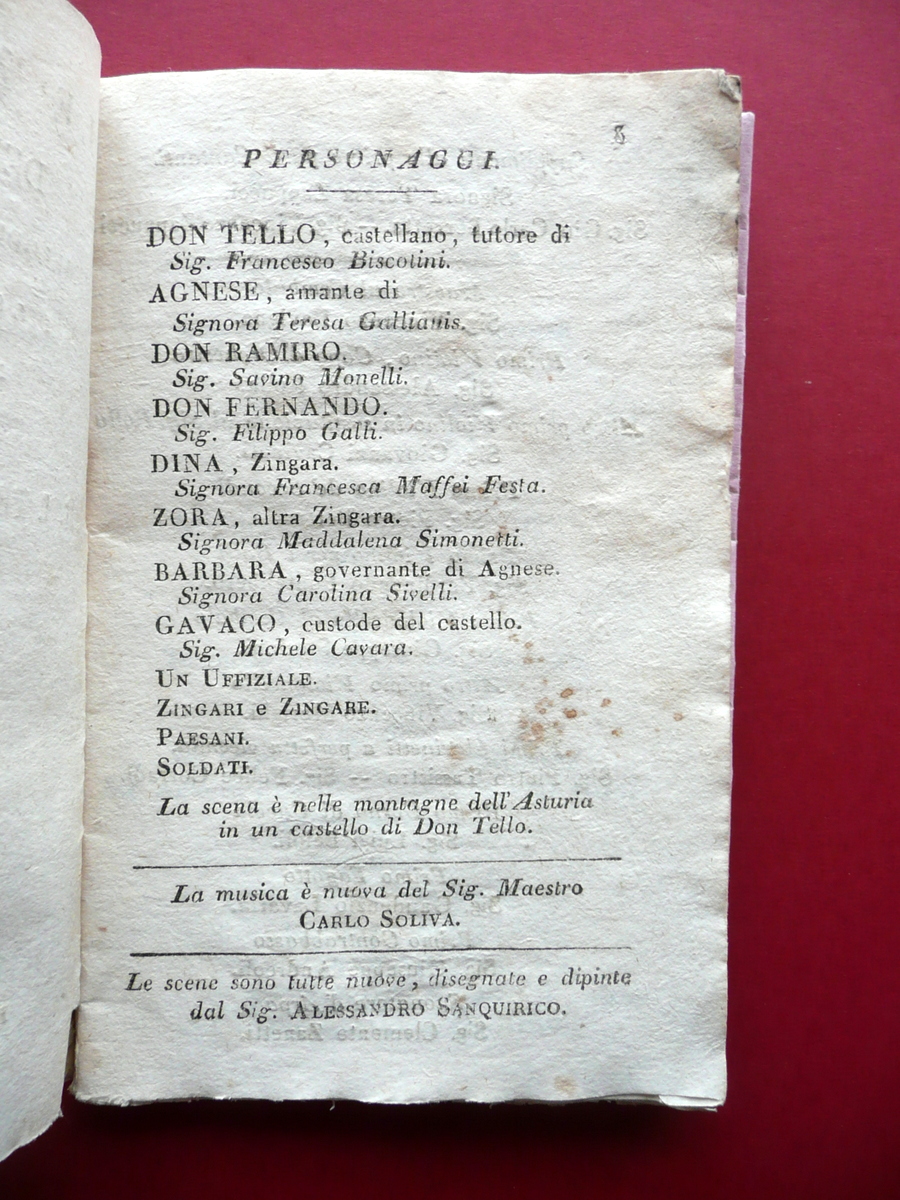 8
PERSONAGGI.
DON TELLO, castellano, tutore di
Sig. Francesco Biscotini.
AGNESE, amante di
Signora Teresa Gallianis.
DON RAMIRO.
Sig. Savino Monelli.
DON FERNANDO.
Sig. Filippo Galli.
DINA, Zingara.
Signora Francesca Maffei Festa.
ZORA, altra Zingara.
Signora Maddalena Simonetti.
BARBARA, governante di Agnese.
Signora Carolina Sivelli.
GAVACO, custode del castello.
Sig. Michele Cavara.
UN UFFIZIALE.
ZINGARI e ZINGARE.
PAESANI.
SOLDATI.
La scena è nelle montagne dell'Asturia
in un castello di Don Tello.
La musica è nuova del Sig. Maestro
CARLO SOLIVA.
Le scene sono tutte nuove, disegnate e dipinte
dal Sig. ALESSANDRO SANQUIRICO.